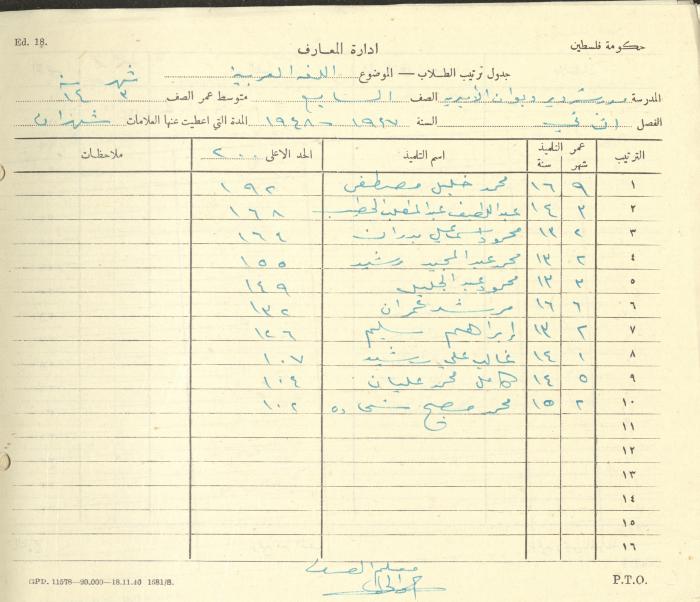 Ed. 18.
حكومة فلسطين
ادارة المعارف
جدول ترتيب الطلاب — الموضوع اللغة العربية
شهر سنة
المدرسة دير ديوان الأميرية الصف السابع متوسط عمر الصف ٣ ١٤
الفصل الثاني السنة ١٩٤٧ - ١٩٤٨ المدة التي اعطيت عنها العلامات شهران
الترتيب عمر التلميذ شهر سنة اسم التلميذ الحد الاعلى ٢٠٠ ملاحظات
١ ٩ ١٦ محمد خليل مصطفى ١٩٢
٢ ٣ ١٤ عبد اللطيف عبد المطلب الخطيب ١٦٨
٣ ٢ ١٣ محمود اسماعيل بدران ١٦٤
٤ ٢ ١٣ محمد عبد المجيد رشيد ١٥٥
٥ ٣ ١٣ محمود عبد الجليل ١٤٩
٦ ٦ ١٦ مرشد عمران ١٣٢
٧ ٢ ١٣ إبراهيم سليم ١٢٦
٨ ١ ١٤ غالب علي رشيد ١٠٧
٩ ٥ ١٤ كامل محمد عليان ١٠٤
١٠ ٢ ١٥ محمد مصلح ١٠٢
١١
١٢
١٣
١٤
١٥
١٦
معلم الصف
GPD. 11578—90.000—18.11.46 1681/S.
P.T.O.